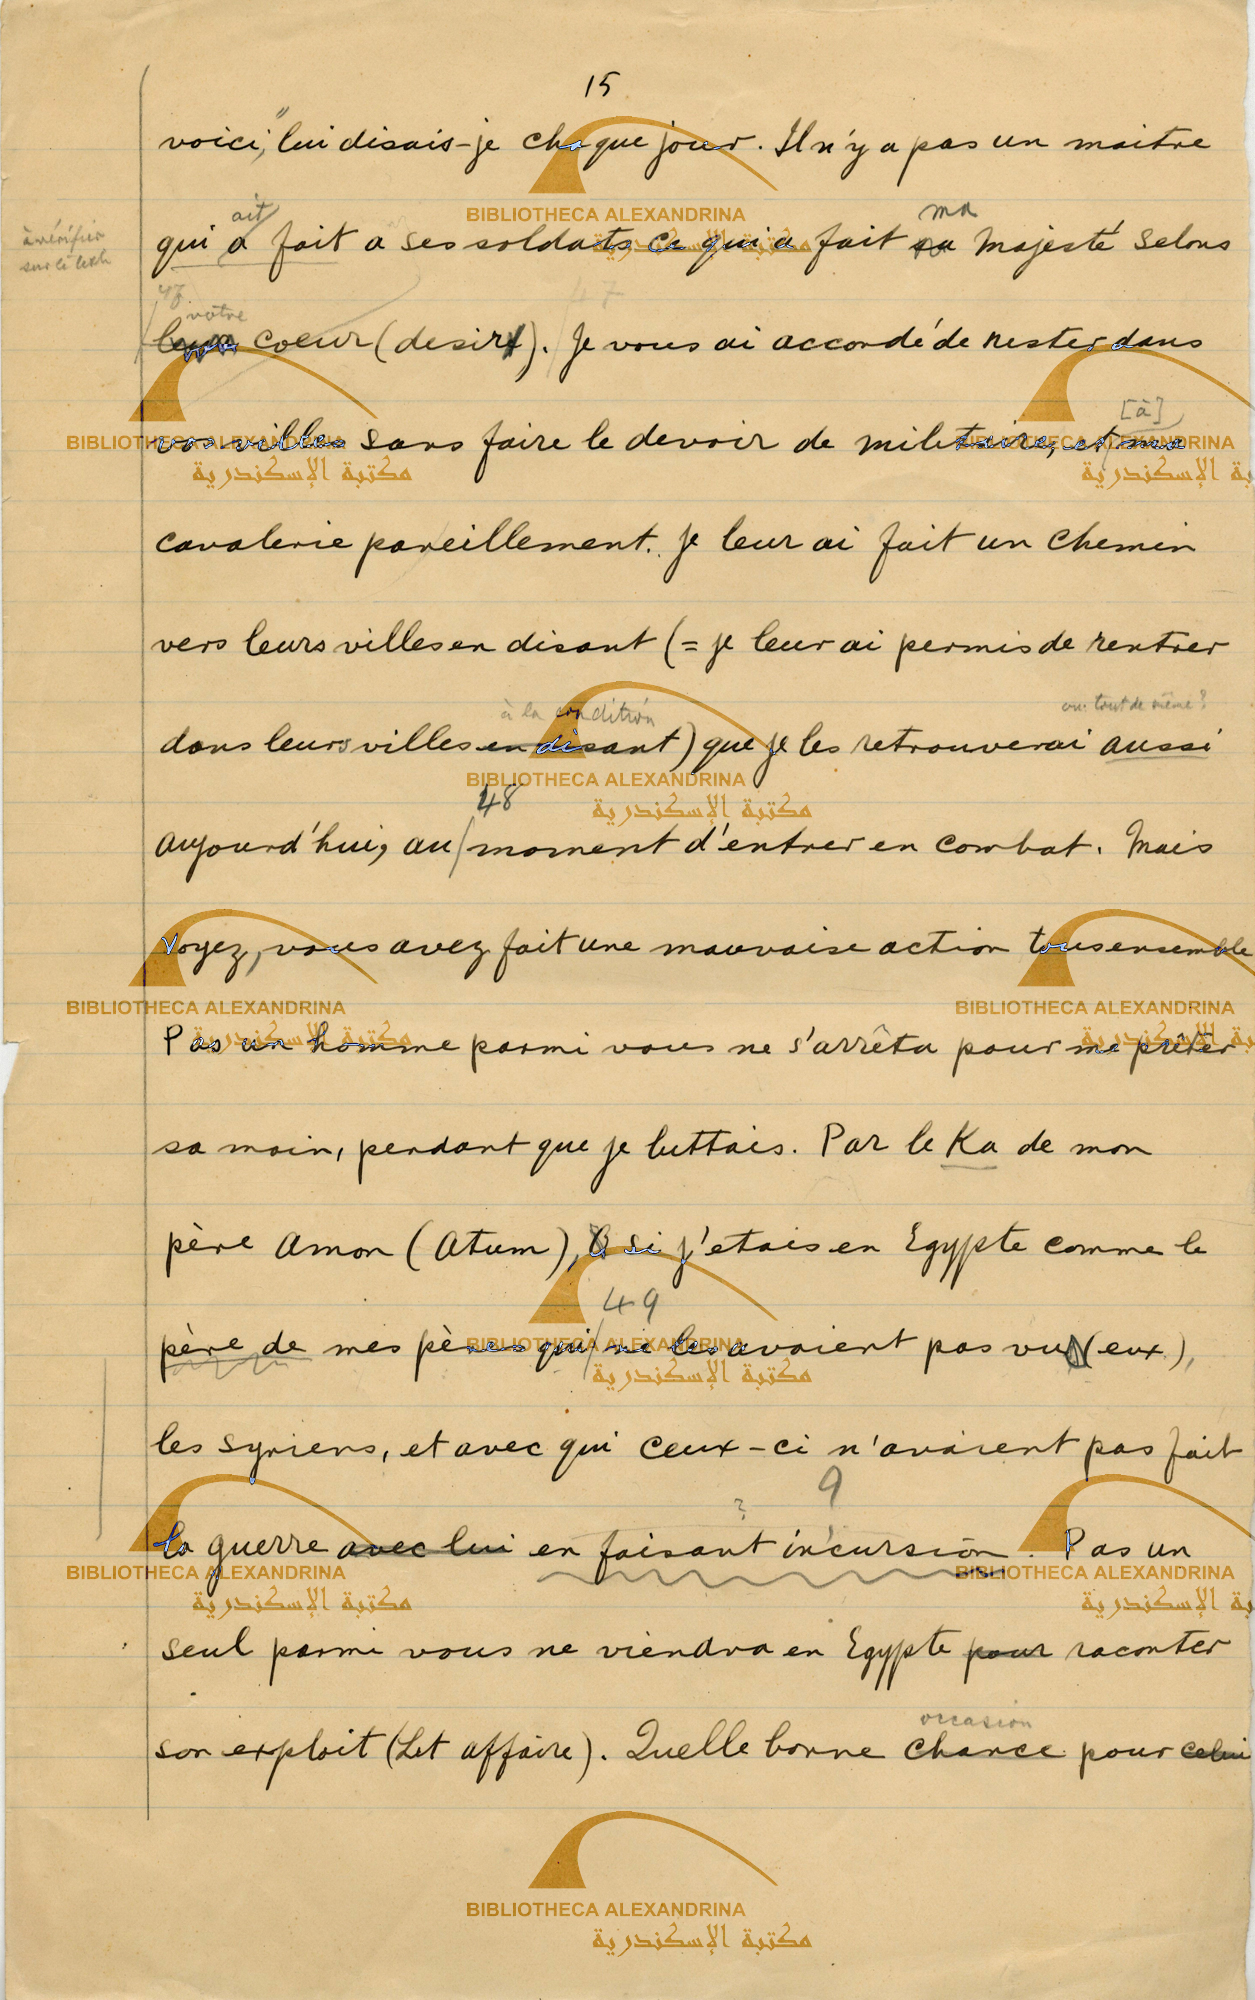 15
voici," lui disais-je chaque jour. Il n'y a pas un maitre
ait
ma
qui a fait a ses soldats ce qui a fait sa Majesté selons
à vérifier
sur le texte
47
votre
47
leur coeur (desir). Je vous ai accordé de rester dans
[à]
vos villes sans faire le devoir de militaire, et ma
cavalerie pareillement. Je leur ai fait un chemin
vers leurs villes en disant (= je leur ai permis de rentrer
à la condition
ou: tout de même?
dans leurs villes en disant) que je les retrouverai aussi
48
aujourd'hui, au/moment d'entrer en combat. Mais
Voyez, vous avez fait une mauvaise action tous ensemble
Pas un homme parmi vous ne s'arrêta pour me prêter
sa main, pendant que je luttais. Par le Ka de mon
père Amon (Atum), si j'etais en Egypte comme le
49
père de mes pères qui/ne les avaient pas vu (eux),
les Syriens, et avec qui ceux-ci n'avaient pas fait
?
9
la guerre avec lui en faisant incursion. Pas un
seul parmi vous ne viendra en Egypte pour raconter
occasion
son exploit (Lit affaire). Quelle bonne chance pour celui
BIBLIOTHECA ALEXANDRINA
مكتبة الإسكندرية